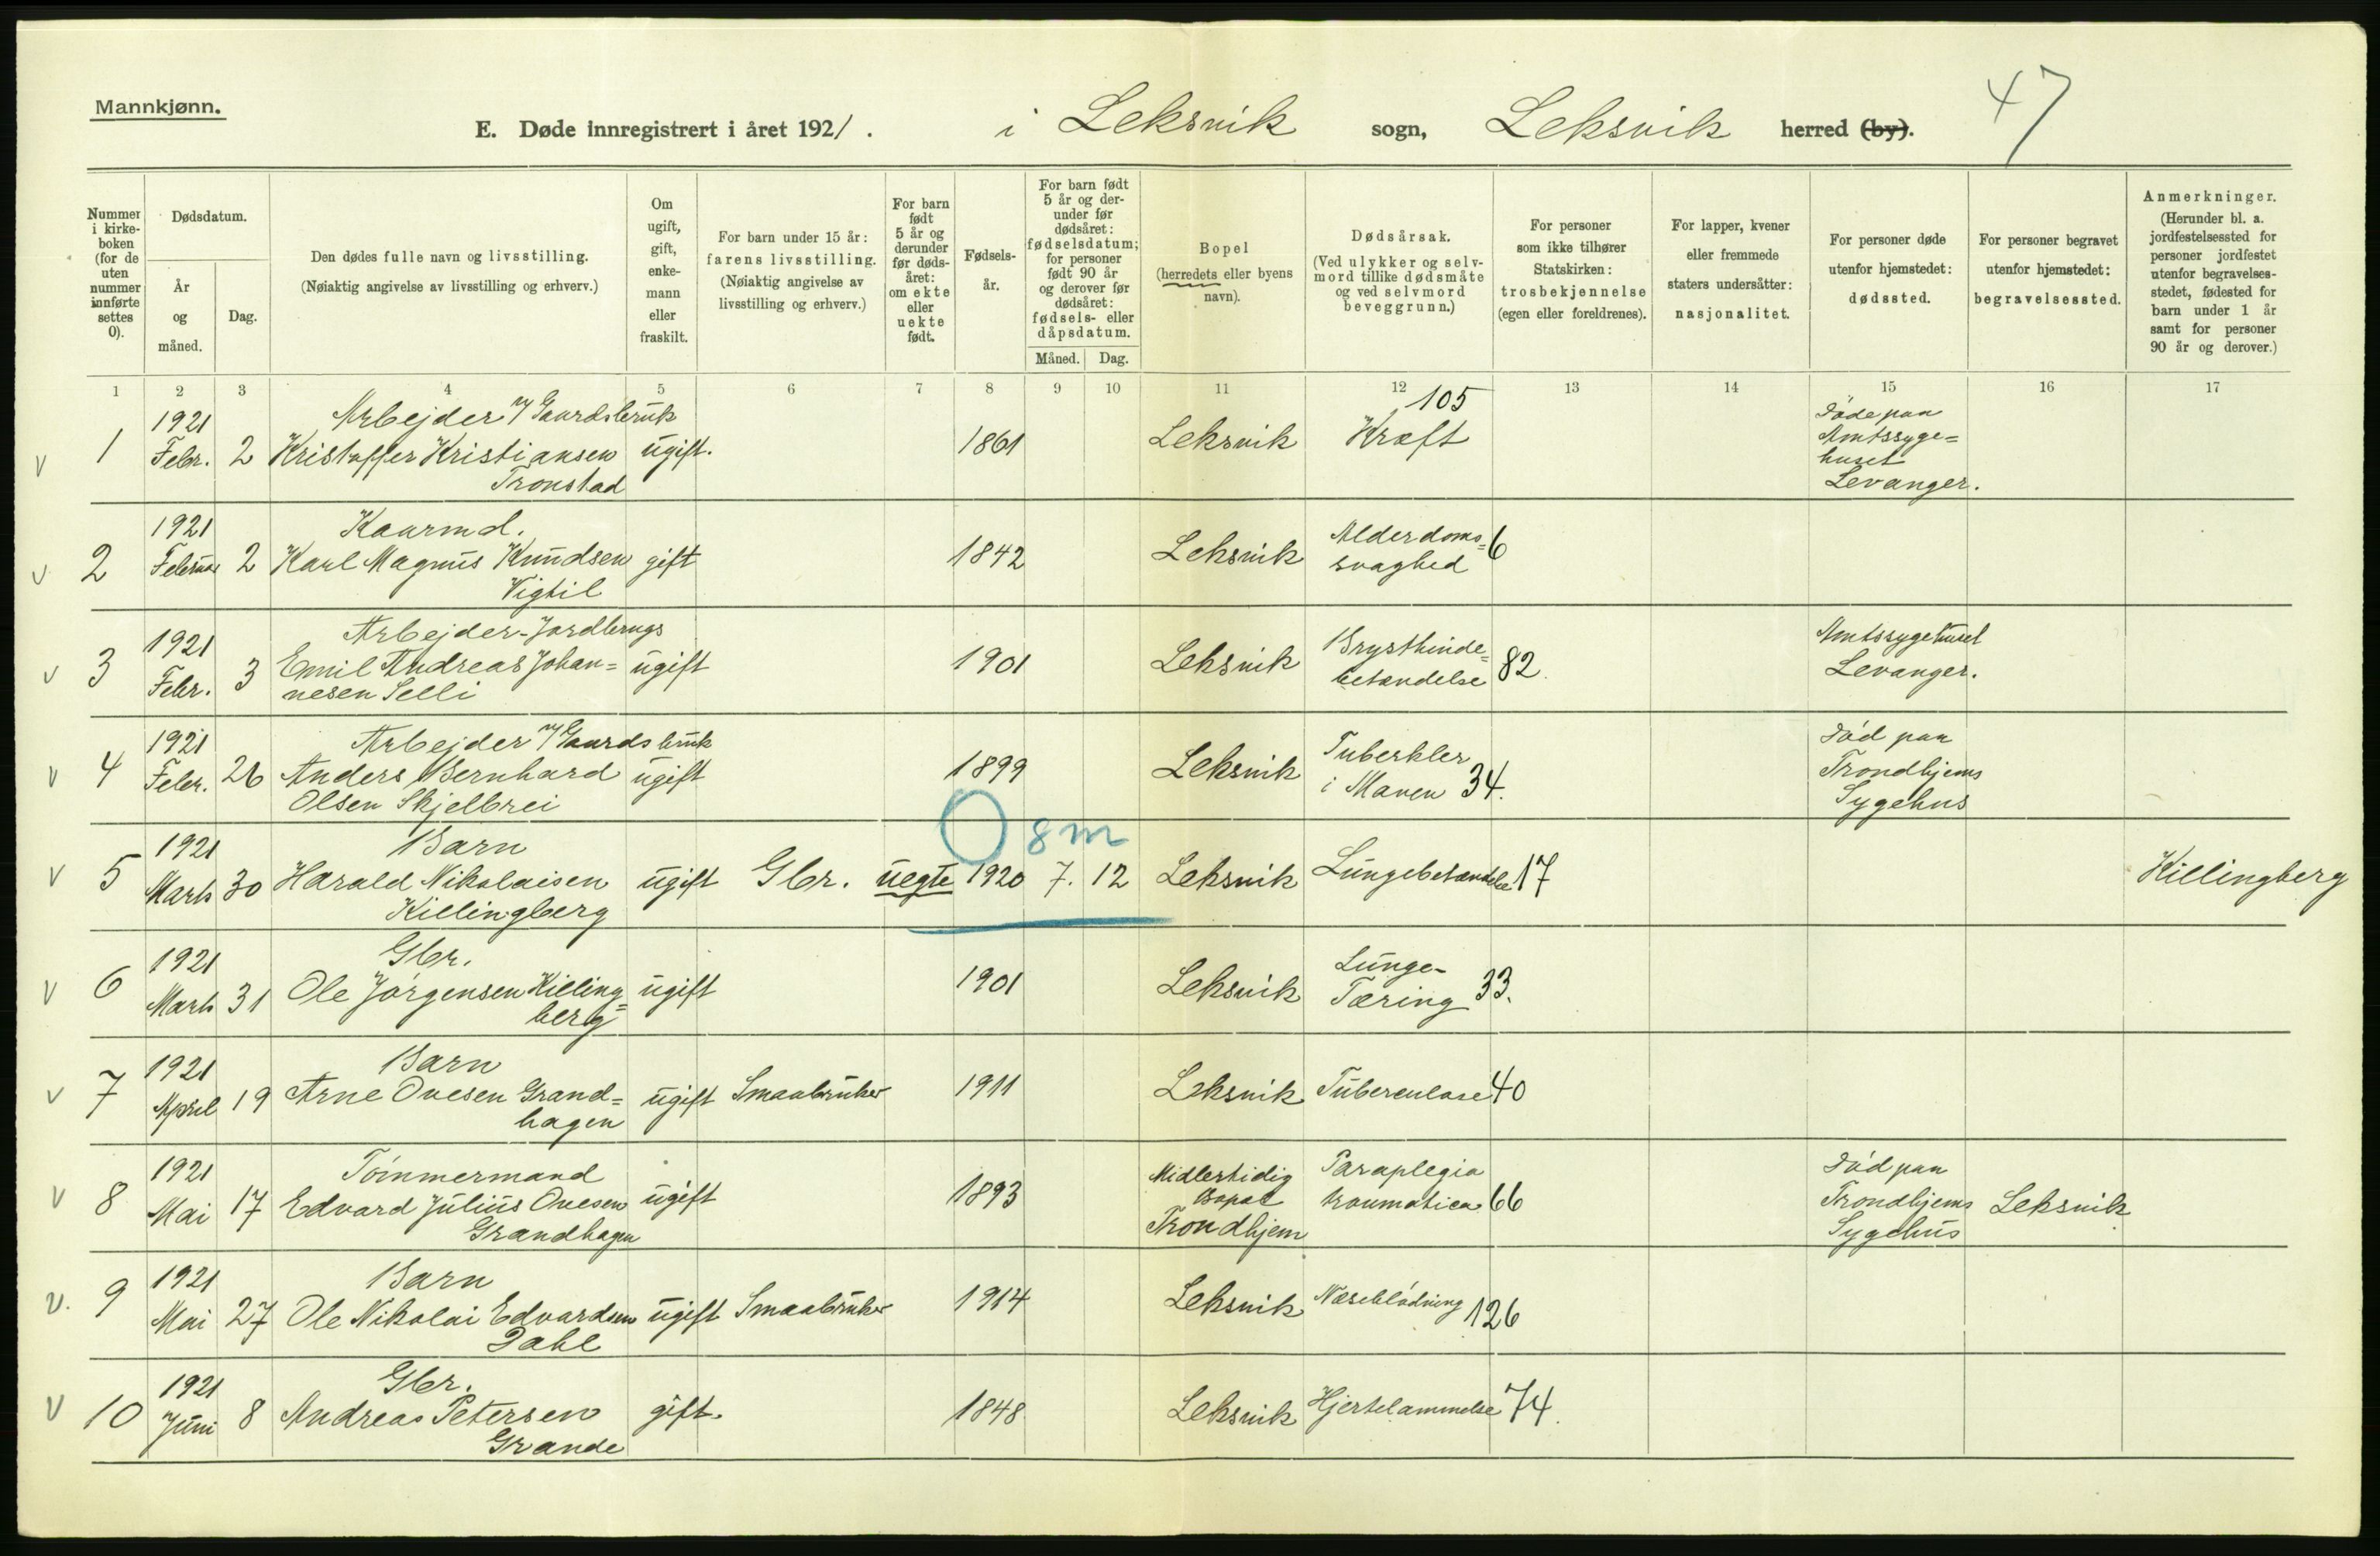 Mannkjønn.
E. Døde innregistrert i året 1921. i Leksvik sogn, Leksvik herred (by). 47
Nummer i kirkeboken (for de uten nummer innførte settes 0).
Dødsdatum.
År og måned.
Dag.
Den dødes fulle navn og livsstilling.
(Nøiaktig angivelse av livsstilling og erhverv.)
Om ugift, gift, enkemann eller fraskilt.
For barn under 15 år: farens livsstilling.
(Nøiaktig angivelse av livsstilling og erhverv.)
For barn født 5 år og derunder før dødsåret: om ekte eller uekte født.
Fødselsår.
For barn født 5 år og derunder før dødsåret: fødselsdatum; for personer født 90 år og derover før dødsåret: fødsels- eller dåpsdatum.
Måned. Dag.
Bopel (herredets eller byens navn).
Dødsårsak.
(Ved ulykker og selvmord tillike dødsmåte og ved selvmord beveggrunn.)
For personer som ikke tilhører Statskirken: trosbekjennelse (egen eller foreldrenes).
For lapper, kvener eller fremmede staters undersåtter: nasjonalitet.
For personer døde utenfor hjemstedet: dødssted.
For personer begravet utenfor hjemstedet: begravelsessted.
Anmerkninger.
(Herunder bl. a. jordfestelsessted for personer jordfestet utenfor begravelsesstedet, fødested for barn under 1 år samt for personer 90 år og derover.)
1 2 3 4 5 6 7 8 9 10 11 12 13 14 15 16 17
v 1 1921 Febr. 2 Arbejder v/ Gaardsbruk Kristoffer Kristiansen Tronstad ugift. 1861 Leksvik Kræft 105 Døde paa Amtssyge=huset Levanger.
v 2 1921 Februar 2 Kaarmd. Karl Magnus Knudsen Vigtil gift 1842 Leksvik Alderdoms=svaghed 6
v 3 1921 Febr. 3 Arbejder-Jordbrugs Emil Andreas Johan=nesen Selli ugift 1901 Leksvik Brysthinde=betændelse 82. Amtssygehuset Levanger.
v 4 1921 Febr. 26 Arbejder v/ Gaardsbruk Anders Bernhard Olsen Skjelbrei ugift 1899 Leksvik Tuberkler i Maven 34. Død paa Trondhjems Sygehus
8 m
v 5 1921 Marts 30 Barn Harald Nikolaisen Killingberg ugift Gbr. uegte 1920 7. 12 Leksvik Lungebetændelse 17 Killingberg
v 6 1921 Marts 31 Gbr. Ole Jørgensen Killing=berg ugift 1901 Leksvik Lunge-Tæring 33.
v 7 1921 April 19 Barn Arne Ovesen Grand=hagen ugift Smaabruker 1911 Leksvik Tuberculose 40
v 8 1921 Mai 17 Tømmermand Edvard Julius Ovesen Grandhagen ugift 1893 Midlertidig Bopæl Trondhjem Paraplegia traumatica 66 Død paa Trondhjems Sygehus Leksvik
v. 9 1921 Mai 27 Barn Ole Nikolai Edvardsen Dahl ugift Smaabruker 1914 Leksvik Næseblødning 126
v 10 1921 Juni 8 Gbr. Andreas Petersen Grande gift. 1848 Leksvik Hjertelammelse 74.